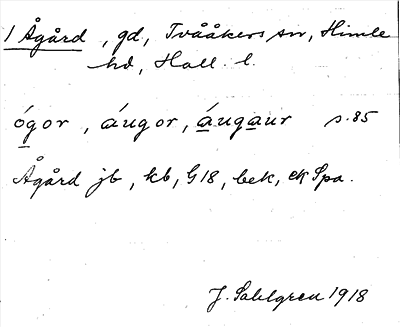 1 Ågård, gd, Tvååkers sn, Himle
hd, Hall. l.
ógor, áugor, áugaur s. 85
Ågård jb, kb, G18, bek, ek Spa.
J. Sahlgren 1918